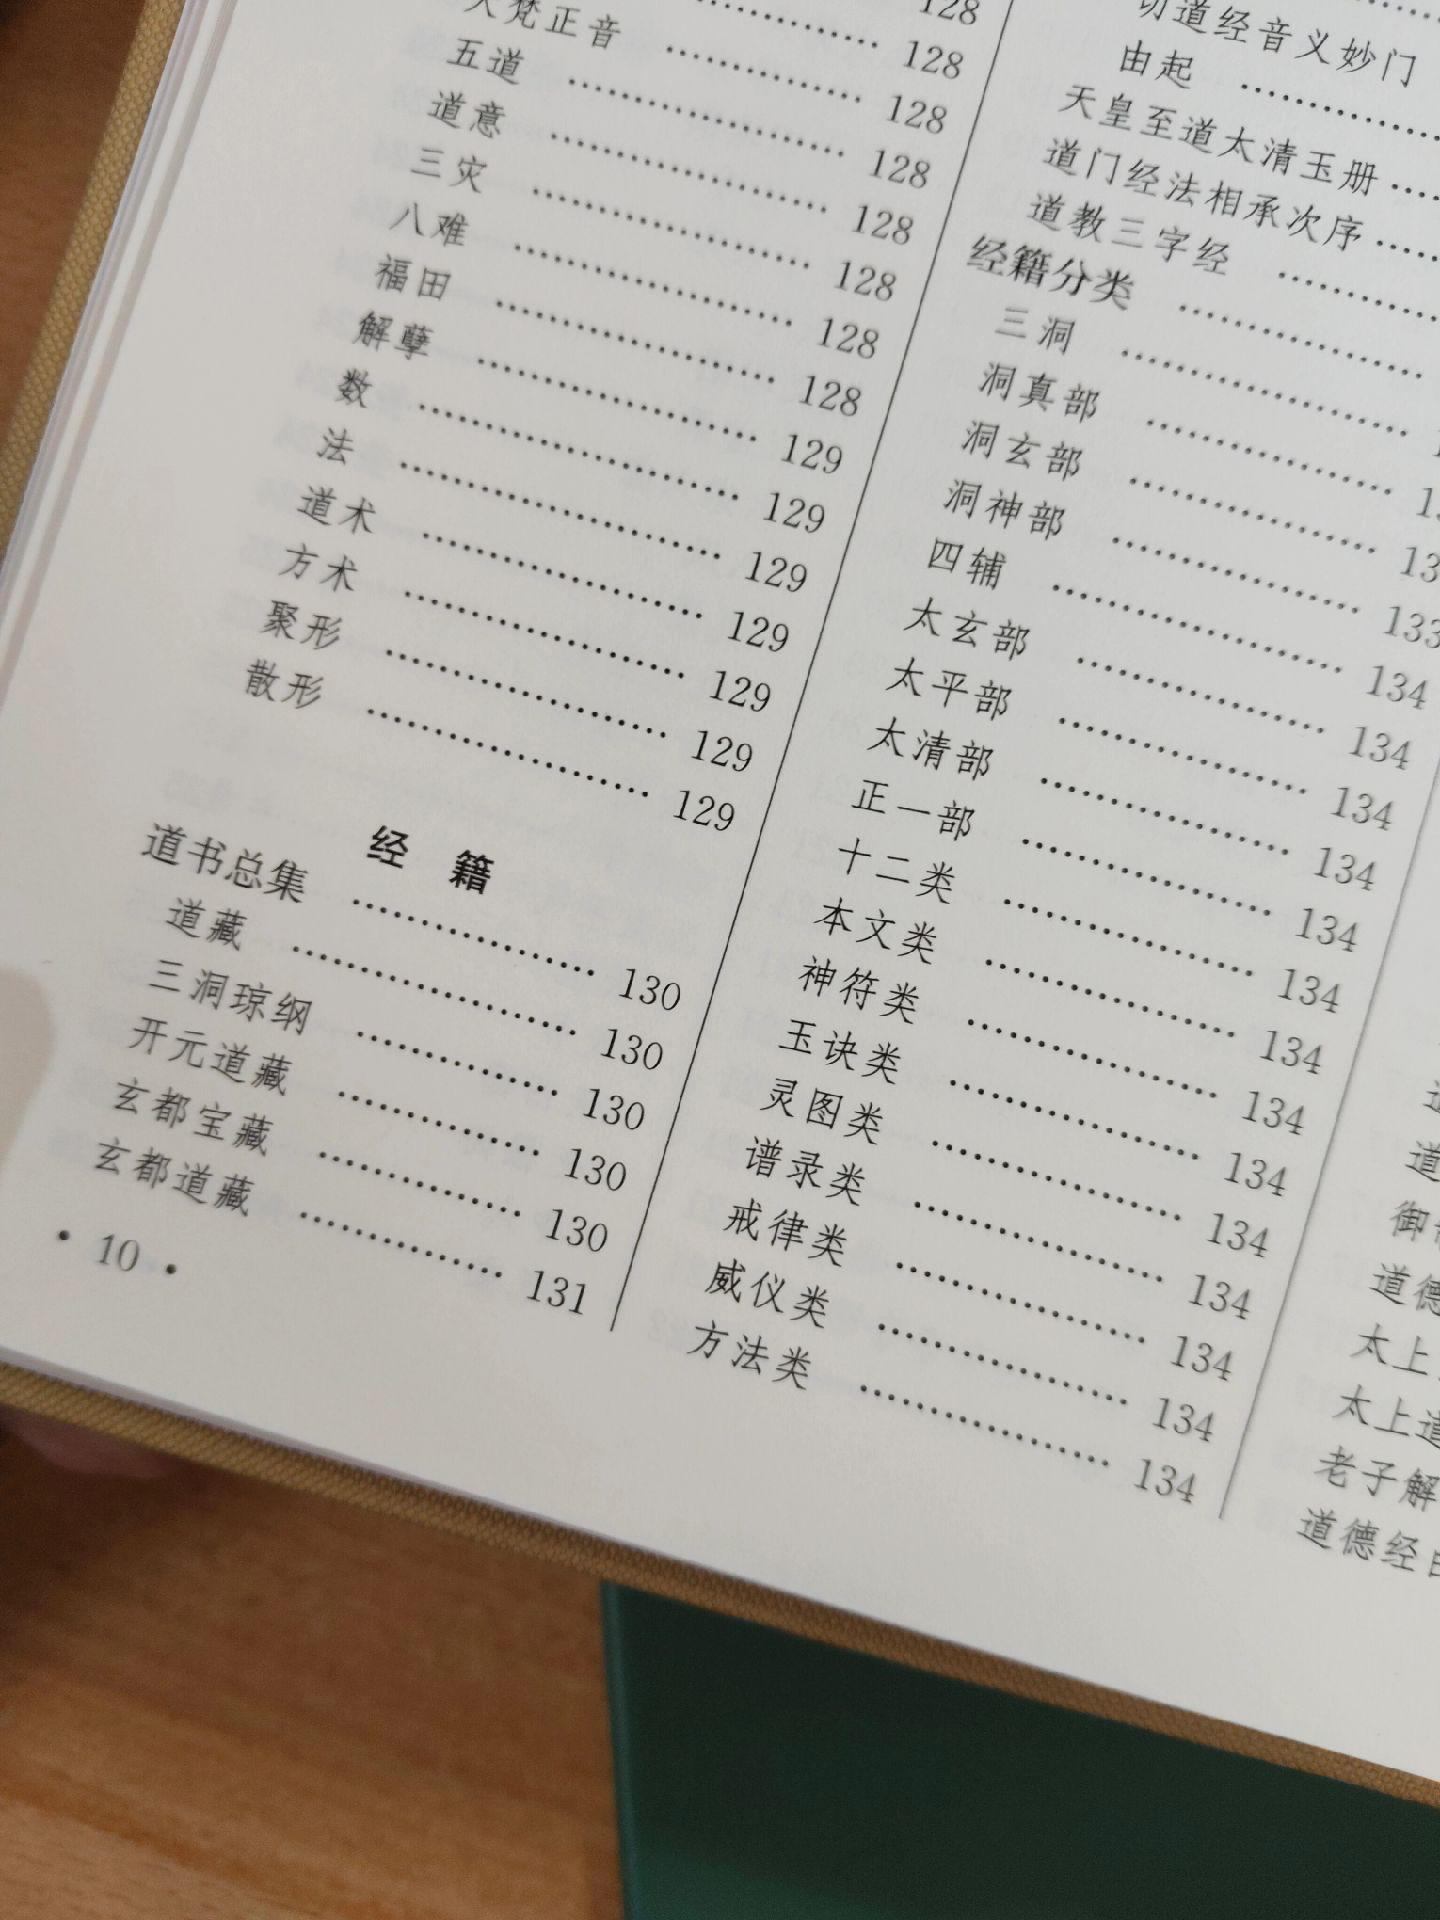 128
128
大梵正音 …………… 128
五道 …………… 128
道意 …………… 128
三灾 …………… 128
八难 …………… 128
福田 …………… 128
解孽 …………… 129
数 …………… 129
法 …………… 129
道术 …………… 129
方术 …………… 129
聚形 …………… 129
散形 …………… 129
经 籍
道书总集 …………… 130
道藏 …………… 130
三洞琼纲 …………… 130
开元道藏 …………… 130
玄都宝藏 …………… 130
玄都道藏 …………… 131
· 10 ·
切道经音义妙门
由起 ……………
天皇至道太清玉册 ……
道门经法相承次序 ……
道教三字经 ……………
经籍分类 ……………
三洞 ……………
洞真部 ……………
洞玄部 …………… 13
洞神部 …………… 133
四辅 …………… 134
太玄部 …………… 134
太平部 …………… 134
太清部 …………… 134
正一部 …………… 134
十二类 …………… 134
本文类 …………… 134
神符类 …………… 134
玉诀类 …………… 134
灵图类 …………… 134
谱录类 …………… 134
戒律类 …………… 134
威仪类 …………… 134
方法类 …………… 134
道
御
道德
太上
太上道
老子解
道德经